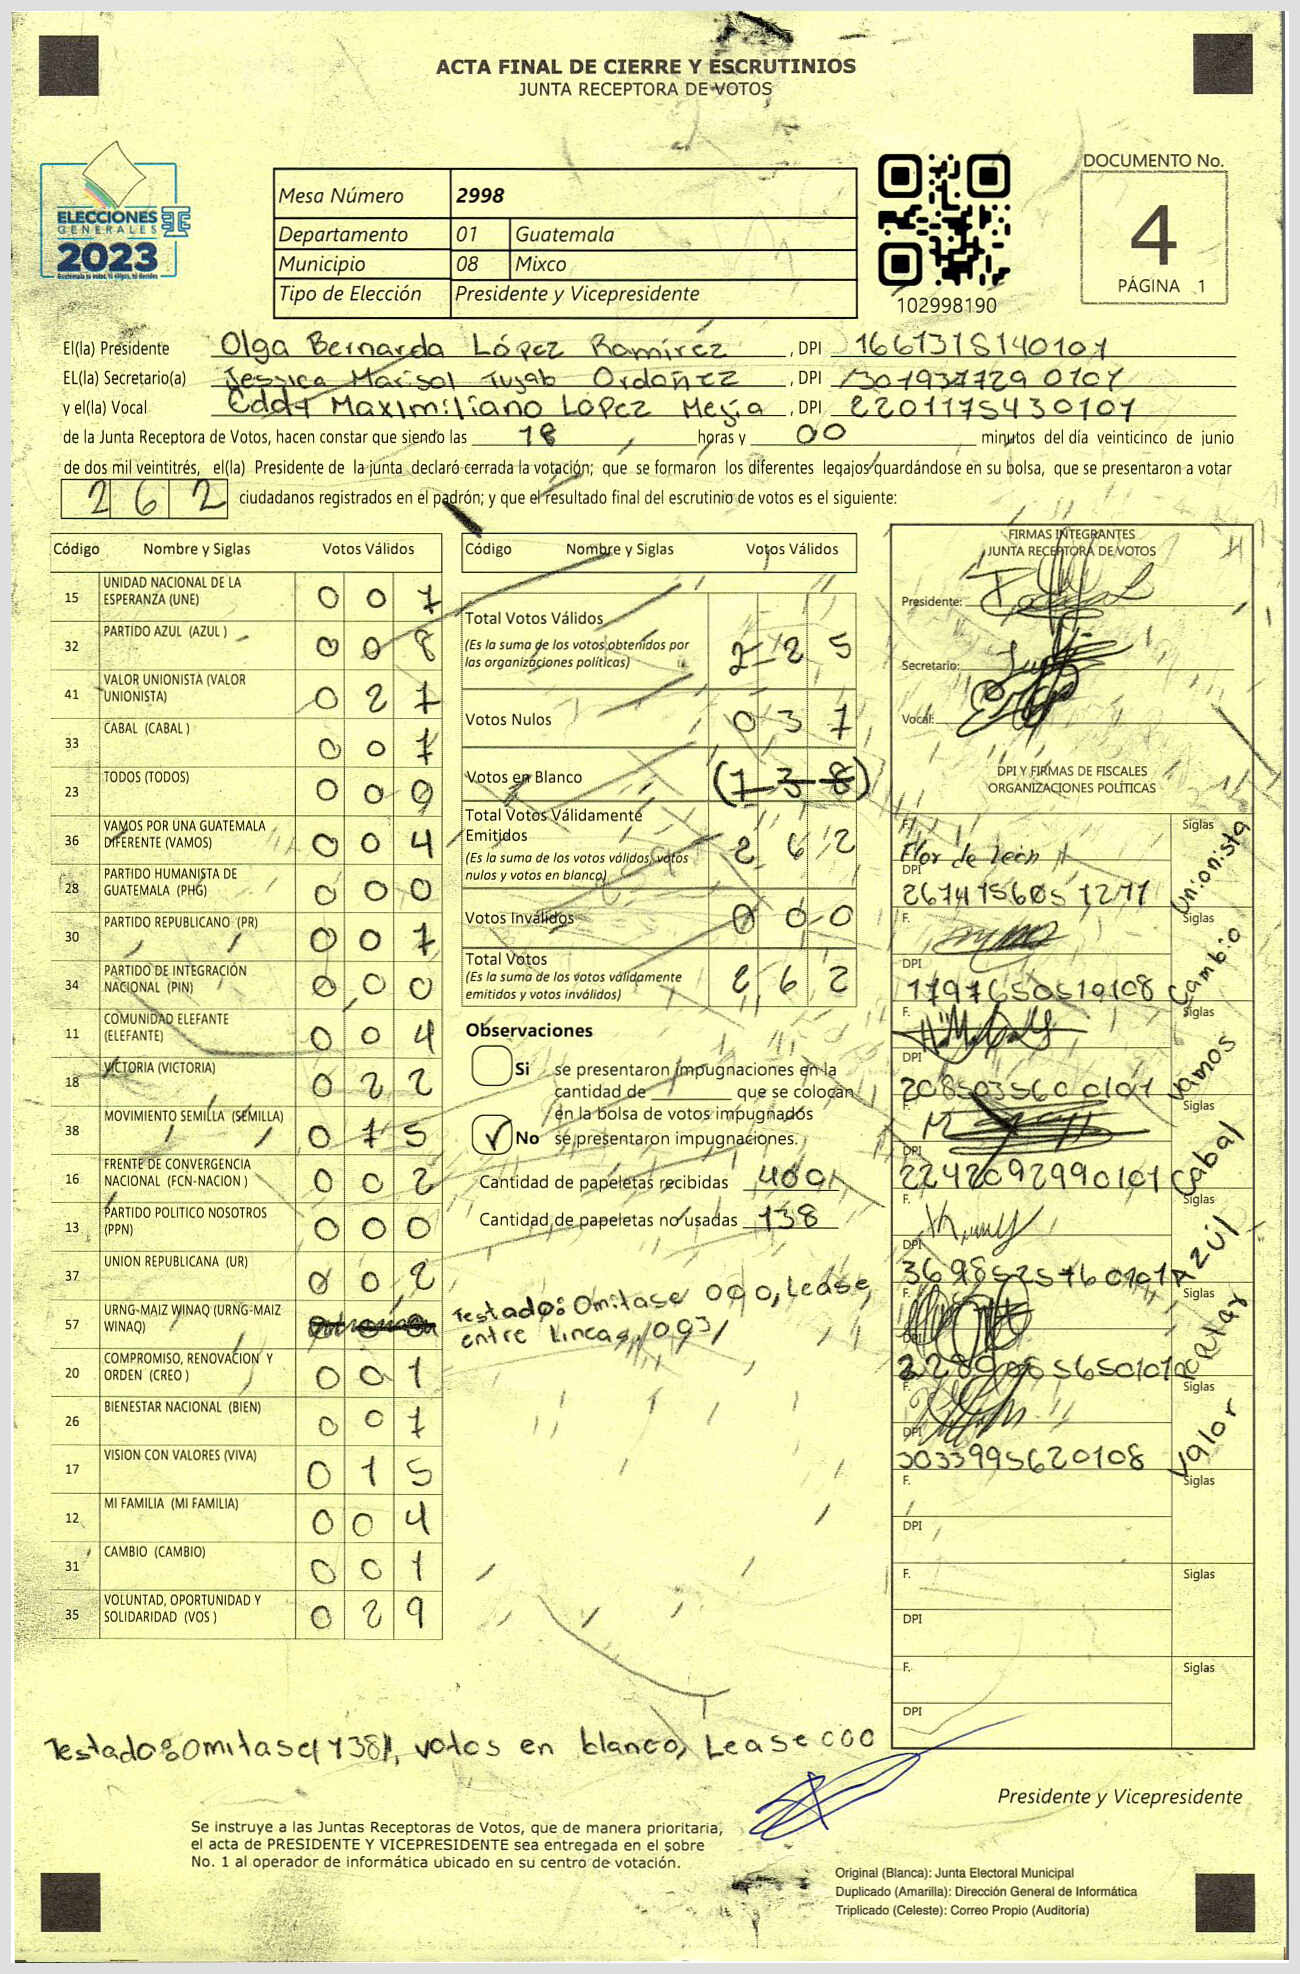 ACTA FINAL DE CIERRE Y ESCRUTINIOS
JUNTA RECEPTORA DE VOTOS
ELECCIONES
GENERALES
2023
Mesa Número 2998
Departamento 01 Guatemala
Municipio 08 Mixco
Tipo de Elección Presidente y Vicepresidente
102998190
DOCUMENTO No.
4
PÁGINA 1
El(la) Presidente Olga Bernarda López Ramírez, DPI
EL(la) Secretario(a) Jessica Marisol Tujab Ordoñez, DPI
y el(la) Vocal Eddy Maximiliano López Mejia, DPI 2201175430101
de la Junta Receptora de Votos, hacen constar que siendo las 18 horas y 00 minutos del día veinticinco de junio
de dos mil veintitrés, el(la) Presidente de la junta declaró cerrada la votación; que se formaron los diferentes legajos guardándose en su bolsa, que se presentaron a votar
262 ciudadanos registrados en el padrón; y que el resultado final del escrutinio de votos es el siguiente:
Código Nombre y Siglas Votos Válidos
15 UNIDAD NACIONAL DE LA ESPERANZA (UNE) 0 0 7
32 PARTIDO AZUL (AZUL ) 0 0 8
41 VALOR UNIONISTA (VALOR UNIONISTA) 0 2 7
33 CABAL (CABAL ) 0 0 7
23 TODOS (TODOS) 0 0 9
36 VAMOS POR UNA GUATEMALA DIFERENTE (VAMOS) 0 0 4
28 PARTIDO HUMANISTA DE GUATEMALA (PHG) 0 0 0
30 PARTIDO REPUBLICANO (PR) 0 0 7
34 PARTIDO DE INTEGRACIÓN NACIONAL (PIN) 0 0 0
11 COMUNIDAD ELEFANTE (ELEFANTE) 0 0 4
18 VICTORIA (VICTORIA) 0 2 2
38 MOVIMIENTO SEMILLA (SEMILLA) 0 7 5
16 FRENTE DE CONVERGENCIA NACIONAL (FCN-NACION ) 0 0 2
13 PARTIDO POLITICO NOSOTROS (PPN) 0 0 0
37 UNION REPUBLICANA (UR) 0 0 2
57 URNG-MAIZ WINAQ (URNG-MAIZ WINAQ)
20 COMPROMISO, RENOVACION Y ORDEN (CREO ) 0 0 1
26 BIENESTAR NACIONAL (BIEN) 0 0 1
17 VISION CON VALORES (VIVA) 0 1 5
12 MI FAMILIA (MI FAMILIA) 0 0 4
31 CAMBIO (CAMBIO) 0 0 1
35 VOLUNTAD, OPORTUNIDAD Y SOLIDARIDAD (VOS ) 0 2 9
Código Nombre y Siglas Votos Válidos
Total Votos Válidos 2 2 5
(Es la suma de los votos obtenidos por
las organizaciones políticas)
Votos Nulos 0 3 7
Votos en Blanco (1 3 8)
Total Votos Válidamente
Emitidos 2 6 2
(Es la suma de los votos válidos, votos
nulos y votos en blanco)
Votos Inválidos 0 0 0
Total Votos 2 6 2
(Es la suma de los votos válidamente
emitidos y votos inválidos)
Observaciones
Si se presentaron impugnaciones en la
cantidad de ________ que se colocan
en la bolsa de votos impugnados
No se presentaron impugnaciones.
Cantidad de papeletas recibidas 400
Cantidad de papeletas no usadas 138
Testado: Omitase 000, Lease,
entre Lineas
FIRMAS INTEGRANTES
JUNTA RECEPTORA DE VOTOS
Presidente:
Secretario:
Vocal:
DPI Y FIRMAS DE FISCALES
ORGANIZACIONES POLÍTICAS
F. Flor de león Siglas Unionista
DPI
F. Siglas Cambio
DPI
F. Siglas Vamos
DPI
F. Siglas Cabal
DPI 2242092990101
F. Siglas Azúl
DPI
F. Siglas
DPI
F. Siglas Valor
DPI 3033995620108
F. Siglas
DPI
F. Siglas
DPI
F. Siglas
DPI
Testado: Omitase 138, votos en blanco, Lease 000
Presidente y Vicepresidente
Se instruye a las Juntas Receptoras de Votos, que de manera prioritaria,
el acta de PRESIDENTE Y VICEPRESIDENTE sea entregada en el sobre
No. 1 al operador de informática ubicado en su centro de votación.
Original (Blanca): Junta Electoral Municipal
Duplicado (Amarilla): Dirección General de Informática
Triplicado (Celeste): Correo Propio (Auditoría)